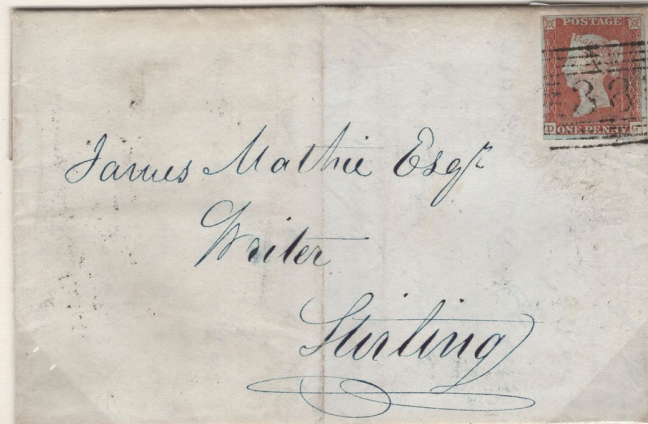 POSTAGE
ONE PENNY
James Mathie Esqr
Writer
Stirling